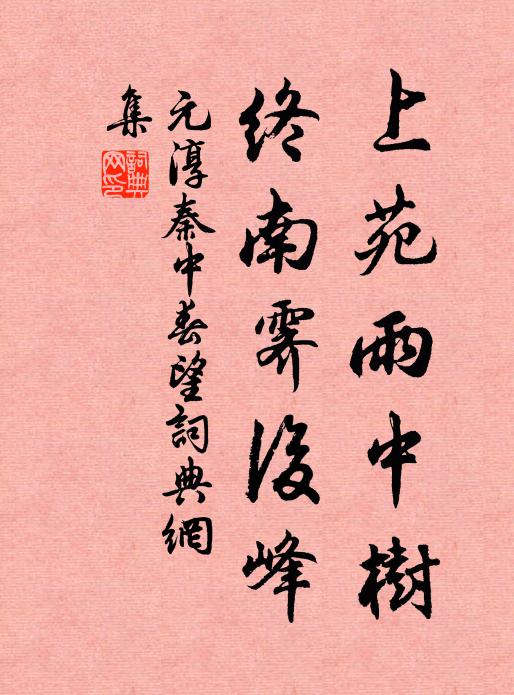 上苑雨中樹
終南霽後峰
元淳秦中春望詞典網
集
詞典网印